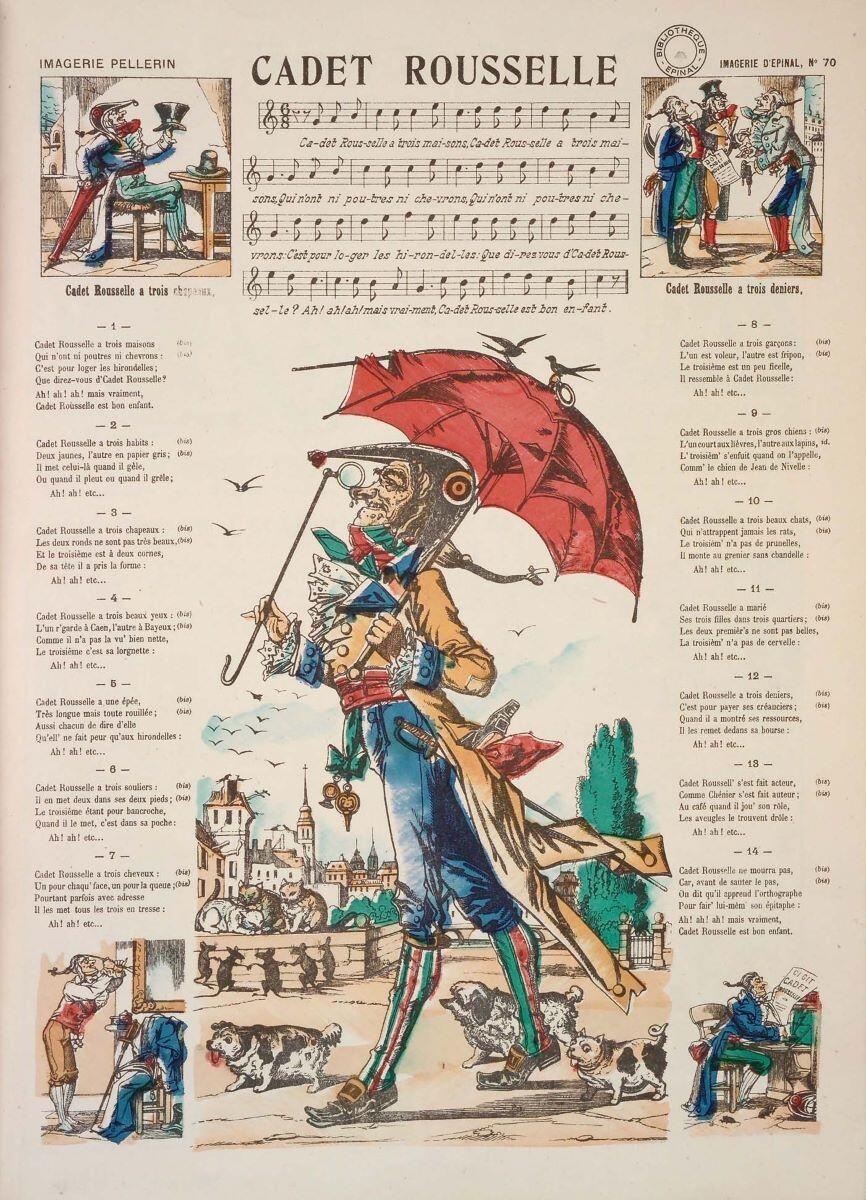 IMAGERIE PELLERIN
CADET ROUSSELLE
BIBLIOTHEQUE
EPINAL
IMAGERIE D'EPINAL, N° 70
Ca-det Rous-selle a trois mai-sons, Ca-det Rous-selle a trois mai-
sons, Qui n'ont ni pou-tres ni che-vrons, Qui n'ont ni pou-tres ni che-
vrons: C'est pour lo-ger les hi-ron-del-les: Que di-rez vous d'Ca-det Rous-
sel-le? Ah! ah! ah! mais vrai-ment, Ca-det Rous-selle est bon en-fant.
Cadet Rousselle a trois chapeaux,
Cadet Rousselle a trois deniers,
— 1 —
Cadet Rousselle a trois maisons (bis)
Qui n'ont ni poutres ni chevrons : (bis)
C'est pour loger les hirondelles;
Que direz-vous d'Cadet Rousselle?
Ah! ah! ah! mais vraiment,
Cadet Rousselle est bon enfant.
— 2 —
Cadet Rousselle a trois habits : (bis)
Deux jaunes, l'autre en papier gris; (bis)
Il met celui-là quand il gèle,
Ou quand il pleut ou quand il grêle;
Ah! ah! etc...
— 3 —
Cadet Rousselle a trois chapeaux : (bis)
Les deux ronds ne sont pas très beaux, (bis)
Et le troisième est à deux cornes,
De sa tête il a pris la forme :
Ah! ah! etc...
— 4 —
Cadet Rousselle a trois beaux yeux : (bis)
L'un r'garde à Caen, l'autre à Bayeux; (bis)
Comme il n'a pas la vu' bien nette,
Le troisième c'est sa lorgnette :
Ah! ah! etc...
— 5 —
Cadet Rousselle a une épée, (bis)
Très longue mais toute rouillée; (bis)
Aussi chacun de dire d'elle
Qu'ell' ne fait peur qu'aux hirondelles :
Ah! ah! etc...
— 6 —
Cadet Rousselle a trois souliers : (bis)
Il en met deux dans ses deux pieds; (bis)
Le troisième étant pour bancroche,
Quand il le met, c'est dans sa poche:
Ah! ah! etc...
— 7 —
Cadet Rousselle a trois cheveux : (bis)
Un pour chaqu' face, un pour la queue; (bis)
Pourtant parfois avec adresse
Il les met tous les trois en tresse :
Ah! ah! etc...
— 8 —
Cadet Rousselle a trois garçons: (bis)
L'un est voleur, l'autre est fripon, (bis)
Le troisième est un peu ficelle,
Il ressemble à Cadet Rousselle:
Ah! ah! etc...
— 9 —
Cadet Rousselle a trois gros chiens : (bis)
L'un court aux lièvres, l'autre aux lapins, id.
L' troisièm' s'enfuit quand on l'appelle,
Comm' le chien de Jean de Nivelle :
Ah! ah! etc...
— 10 —
Cadet Rousselle a trois beaux chats, (bis)
Qui n'attrappent jamais les rats, (bis)
Le troisièm' n'a pas de prunelles,
Il monte au grenier sans chandelle :
Ah! ah! etc...
— 11 —
Cadet Rousselle a marié (bis)
Ses trois filles dans trois quartiers; (bis)
Les deux premièr's ne sont pas belles,
La troisièm' n'a pas de cervelle :
Ah! ah! etc...
— 12 —
Cadet Rousselle a trois deniers, (bis)
C'est pour payer ses créanciers; (bis)
Quand il a montré ses ressources,
Il les remet dedans sa bourse :
Ah! ah! etc...
— 13 —
Cadet Roussell' s'est fait acteur, (bis)
Comme Chénier s'est fait auteur; (bis)
Au café quand il jou' son rôle,
Les aveugles le trouvent drôle :
Ah! ah! etc...
— 14 —
Cadet Rousselle ne mourra pas, (bis)
Car, avant de sauter le pas, (bis)
On dit qu'il apprend l'orthographe
Pour fair' lui-mèm' son épitaphe :
Ah! ah! ah! mais vraiment,
Cadet Rousselle est bon enfant.
CI GIT
CADET